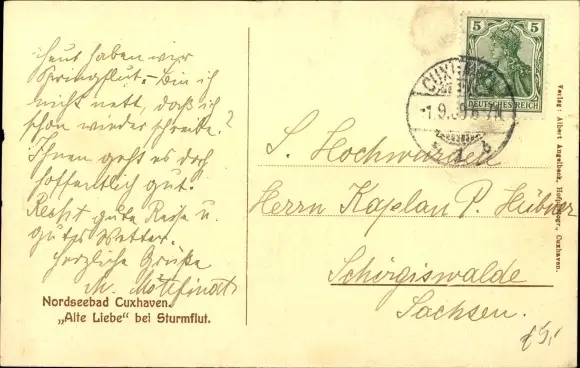 heut haben wir
Springflut. - Bin ich
nicht nett, daß ich
schon wieder schreibe?
Ihnen geht es doch
hoffentlich gut.
Recht gute Reise u.
gutes Wetter.
Herzliche Grüße
M.
Nordseebad Cuxhaven.
„Alte Liebe" bei Sturmflut.
5 5
DEUTSCHES REICH
CUXHAVEN
1.9.09
S. Hochwürden
Herrn Kaplan P. Hübner
Schirgiswalde
Sachsen.
Verlag: Albert Angelbeck, Hofphotogr., Cuxhaven.